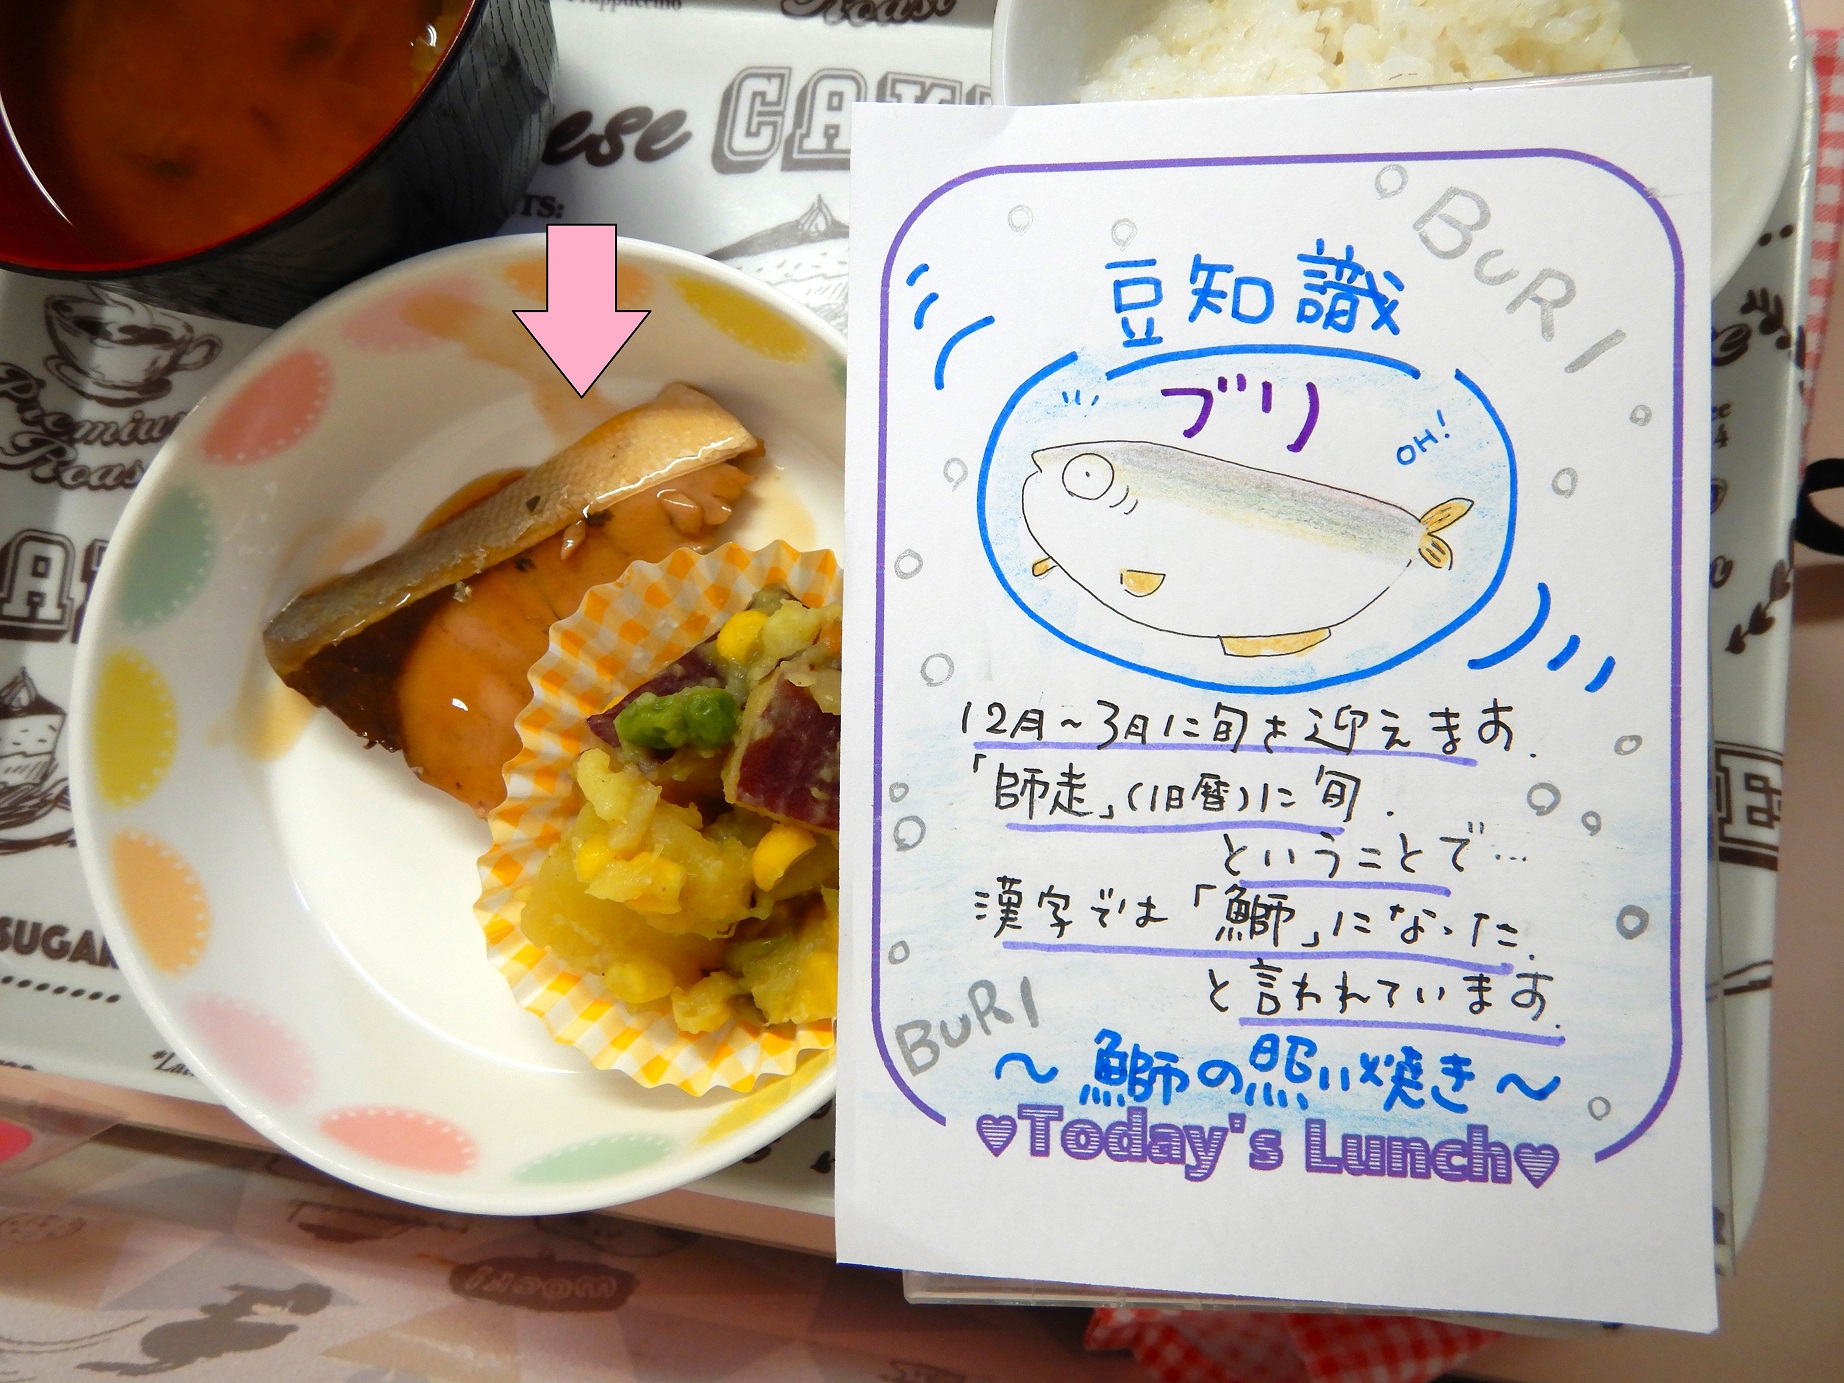 Frappuccino
Roast
ese CAK
TS:
Premium
Roast
SUGAR
BURI
豆知識
ブリ
OH!
12月~3月に旬を迎えます.
「師走」(旧暦)に旬.
ということで…
漢字では「鰤」になった.
と言われています.
BURI
～鰤の照い焼き～
♥Today's Lunch♥